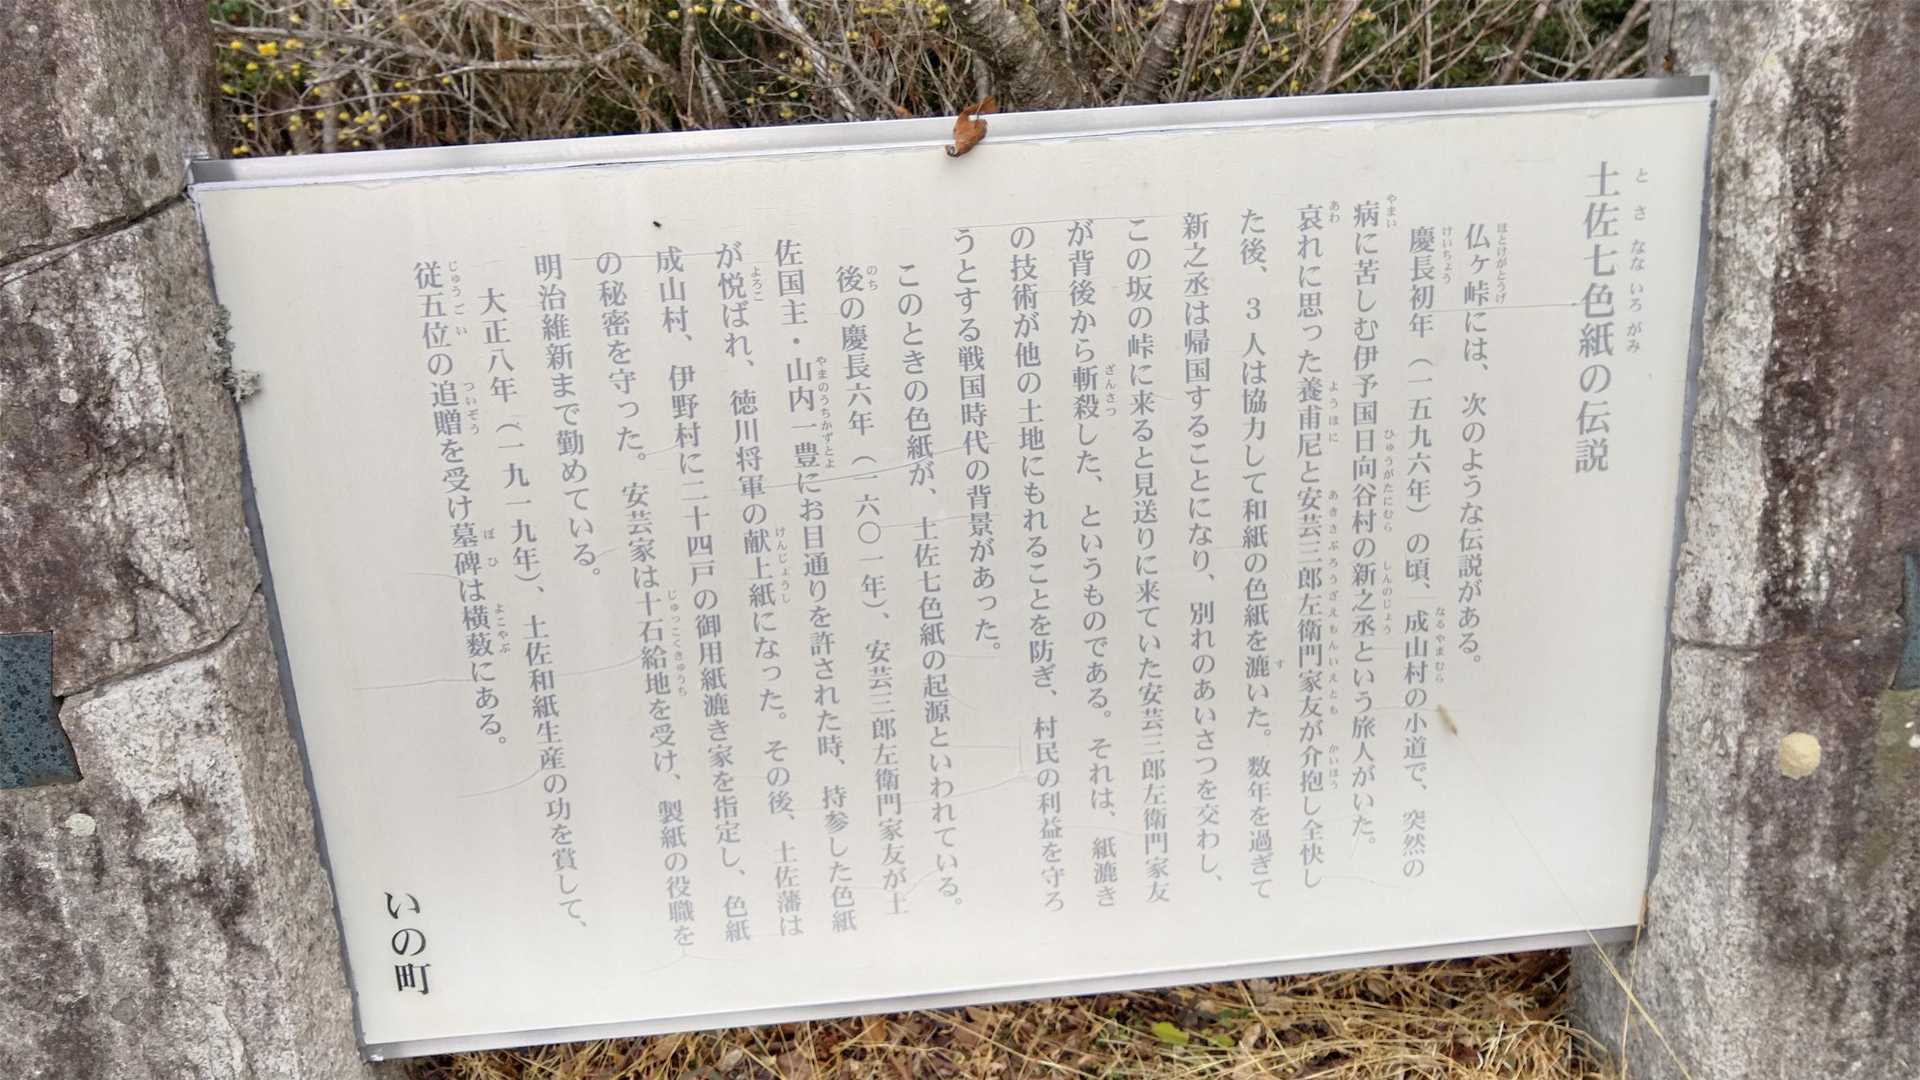 土佐七色紙の伝説
仏ヶ峠には、次のような伝説がある。
慶長初年（一五九六年）の頃、成山村の小道で、突然の
病に苦しむ伊予国日向谷村の新之丞という旅人がいた。
哀れに思った養甫尼と安芸三郎左衛門家友が介抱し全快し
た後、3人は協力して和紙の色紙を漉いた。数年を過ぎて
新之丞は帰国することになり、別れのあいさつを交わし、
この坂の峠に来ると見送りに来ていた安芸三郎左衛門家友
が背後から斬殺した、というものである。それは、紙漉き
の技術が他の土地にもれることを防ぎ、村民の利益を守ろ
うとする戦国時代の背景があった。
このときの色紙が、土佐七色紙の起源といわれている。
後の慶長六年（一六〇一年）、安芸三郎左衛門家友が土
佐国主・山内一豊にお目通りを許された時、持参した色紙
が悦ばれ、徳川将軍の献上紙になった。その後、土佐藩は
成山村、伊野村に二十四戸の御用紙漉き家を指定し、色紙
の秘密を守った。安芸家は十石給地を受け、製紙の役職を
明治維新まで勤めている。
大正八年（一九一九年）、土佐和紙生産の功を賞して、
従五位の追贈を受け墓碑は横藪にある。
いの町